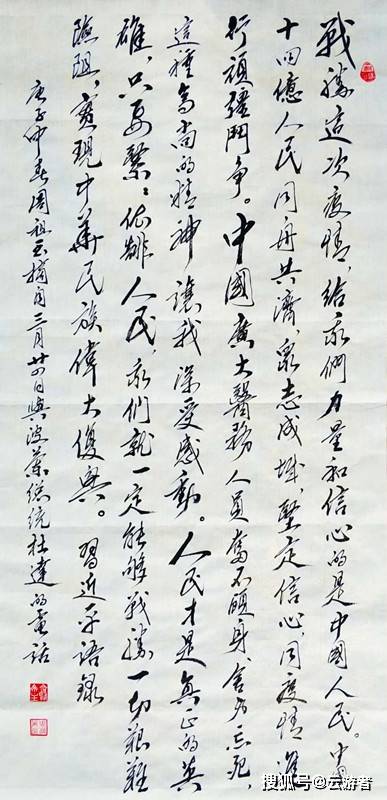 戰勝這次疫情,給我們力量和信心的是中國人民。中國
十四億人民同舟共濟,眾志成城,堅定信心,同疫情進
行頑彊鬥争。中國廣大醫務人員奮不顧身、舍生忘死,
這種高尚的精神讓我深受感動。人民才是真正的英
雄,只要緊〻依靠人民,我們就一定能够戰勝一切艱難
險阻,實現中華民族偉大復興。 習近平語錄
庚子仲春周祖玉摘自三月廿四日與波蘭總統杜達的電話
搜狐号@云游者